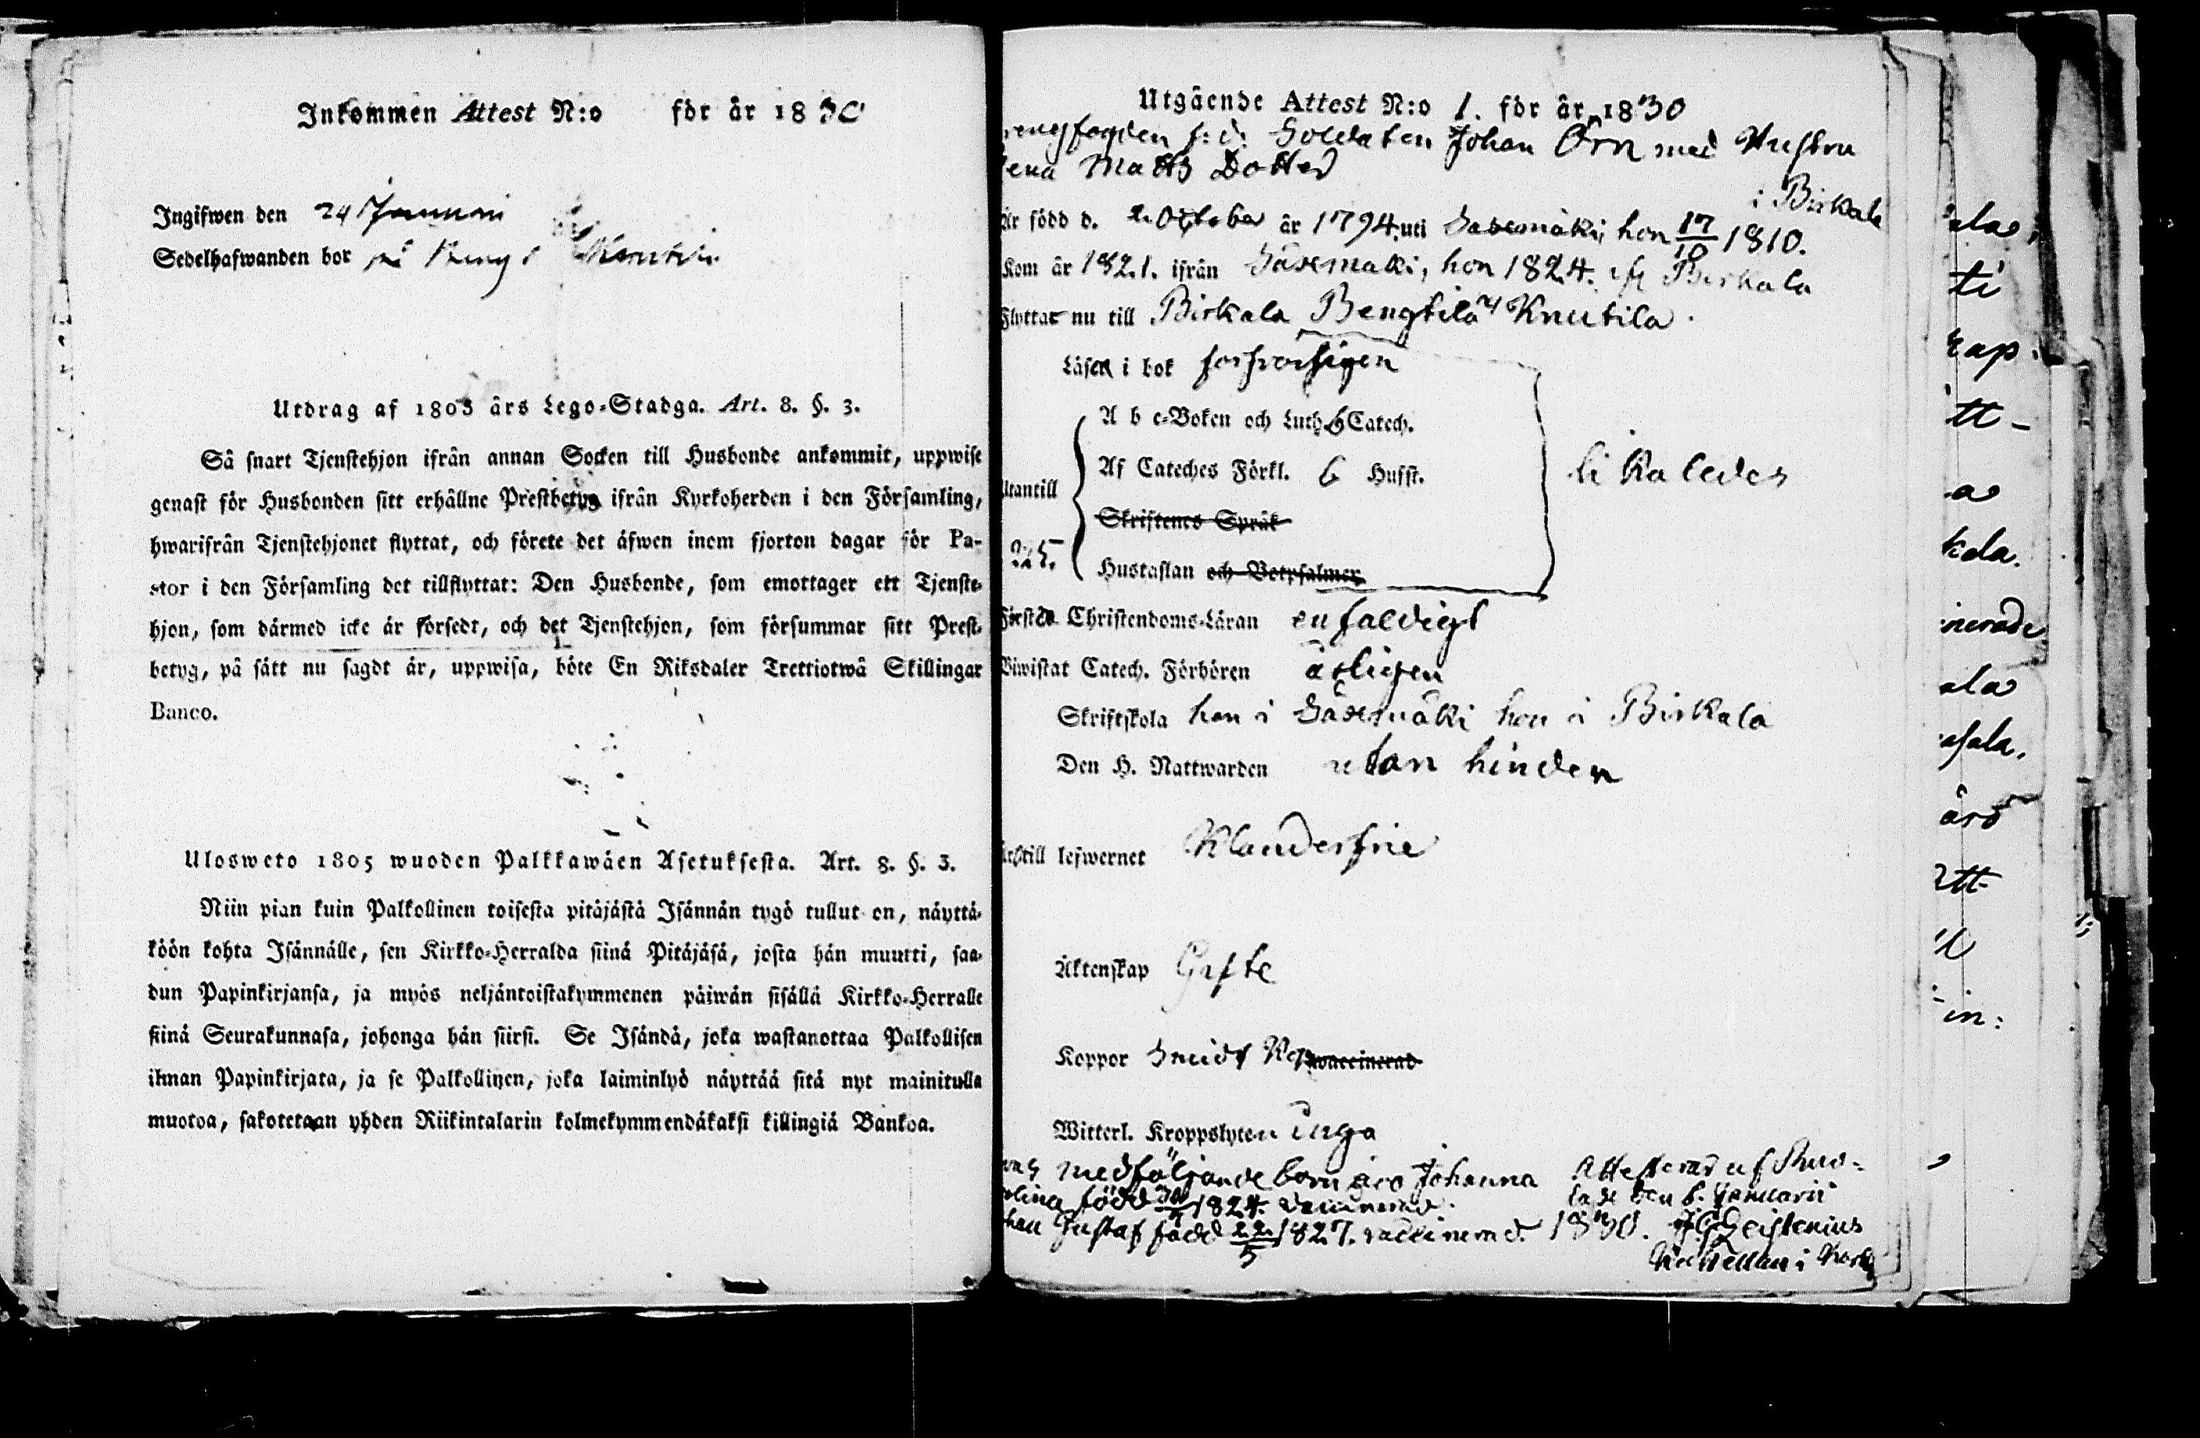 Inkommen Attest N:o för år 1830
Ingifwen den 24 Januari
Sedelhafwanden bor på
Utdrag af 1805 års Lego-Stadga. Art. 8. §. 3.
Så snart Tjenstehjon ifrån annan Socken till Husbonde ankommit, uppwise
genast för Husbonden sitt erhållne Prestbetyg ifrån Kyrkoherden i den Församling,
hwarifrån Tjenstehjonet flyttat, och förete det äfwen inom fjorton dagar för Pa-
stor i den Församling det tillflyttat: Den Husbonde, som emottager ett Tjenste-
hjon, som därmed icke är försedt, och det Tjenstehjon, som försummar sitt Prest-
betyg, på sätt nu sagdt är, uppwisa, böte En Riksdaler Trettiotwå Skillingar
Banco.
Ulosweto 1805 wuoden Palkkawäen Asetuksesta. Art. 8. §. 3.
Niin pian kuin Palkollinen toisesta pitäjästä Isännän tygö tullut on, näyttä-
köön kohta Isännälle, sen Kirkko-Herralda siinä Pitäjäsä, josta hän muutti, saa-
dun Papinkirjansa, ja myös neljäntoistakymmenen päiwän sisällä Kirkko-Herralle
siinä Seurakunnasa, johonga hän siirsi. Se Isändä, joka wastanottaa Palkollisen
ilman Papinkirjata, ja se Palkollinen, joka laiminlyö näyttää sitä nyt mainitulla
muotoa, sakotetaan yhden Riikintalarin kolmekymmendäkaksi killingiä Bankoa.
Utgående Attest N:o 1. för år 1830
rengfogden f: d: Soldaten Johan Örn med Hustru
lena Matts Dotter
i Birkala
Är född d. 2 October år 1794 uti Sasemäki, hon 17/10 1810.
Kom år 1821. ifrån Säxemäki, hon 1824. ifr Birkala
Flyttar nu till Birkala Bengtilä Knutila.
Läsa i bok forsvarligen
Utantill
A b c-Boken och Luth. Catech.
Af Cateches Förkl. 6 Hufst.
Skriftenes Språk
Hustaflan och Botpsalmer
likaledes
325.
Förstå Christendoms-Läran enfaldigt
Biwistat Catech. Förhören årligen
Skriftskola han i Säxemäki hon i Birkala
Den H. Nattwarden utan hinder
till lefwernet Klanderfrie
Äktenskap Gifte
Koppor waccinerad
Witterl. Kroppslyten inga
medföljande barn äro Johanna
lina född 1824. vaccinerad.
han Gustaf född 22/5 1827. vaccinerad.
Attesteras af
den 6. Januarii
1830.
i